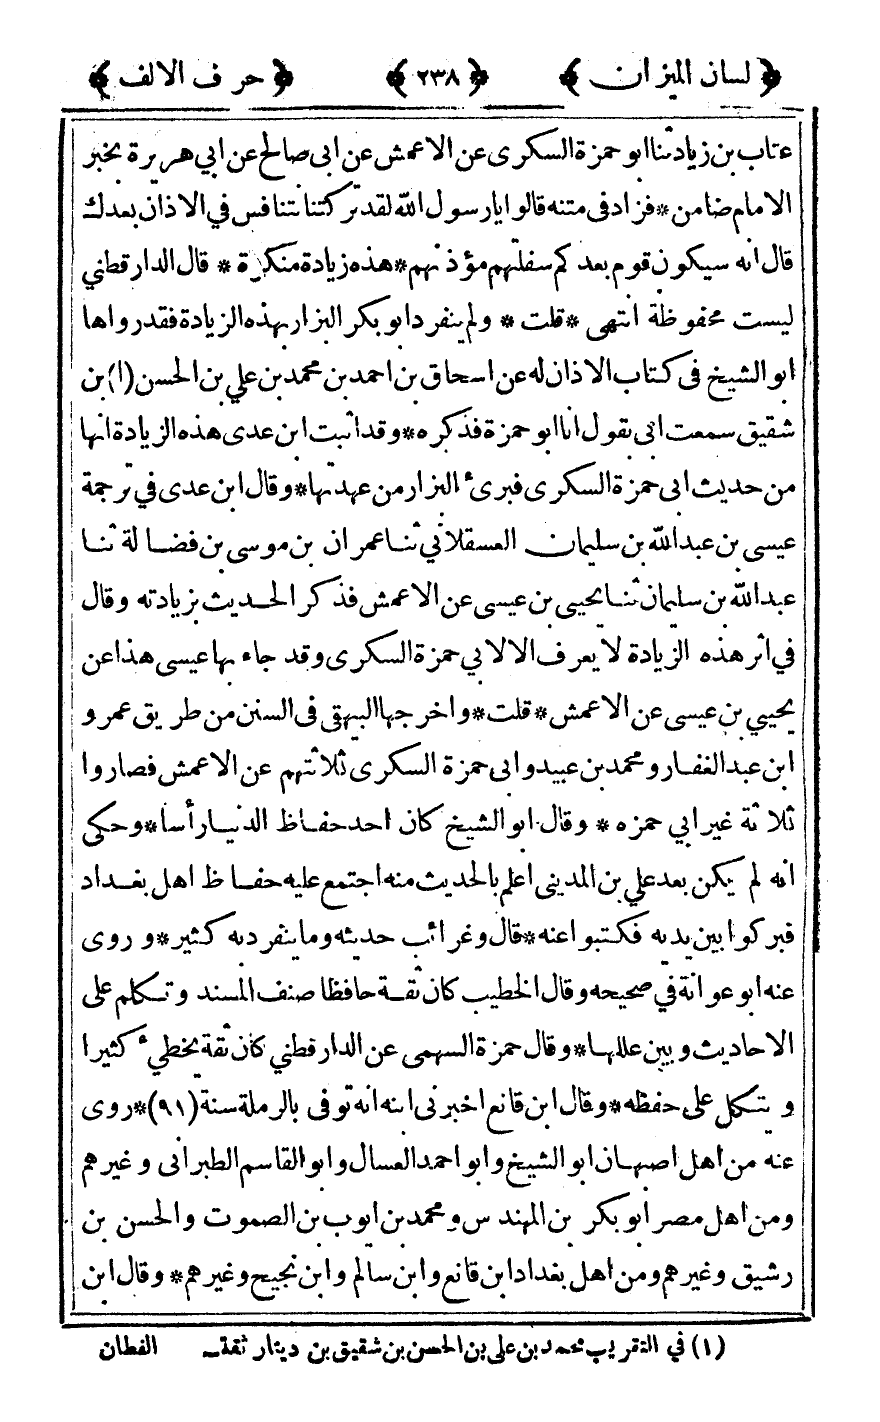 ﴿ لسان الميزان ﴾ ﴿ ٢٣٨ ﴾ ﴿ حرف الالف ﴾
عتاب بن زياد ثنا ابو حمزة السكرى عن الاعمش عن ابى صالح عن ابي هريرة بخبر
الامام ضامن * فزاد فى متنه قالوا يارسول الله لقد تركتنا نتنافس في الاذان بعدك
قال انه سيكون قوم بعدكم سفلتهم مؤذنهم * هذه زيادة منكرة * قال الدارقطني
ليست محفوظة انتهى * قلت * ولم ينفرد ابو بكر البزار بهذه الزيادة فقد رواها
ابو الشيخ فى كتاب الاذان له عن اسحاق بن احمد بن محمد بن علي بن الحسن (١) بن
شقيق سمعت ابى يقول انا ابو حمزة فذكره * وقد اثبت ابن عدى هذه الزيادة انها
من حديث ابى حمزة السكرى فبرىء البزار من عهدتها * وقال ابن عدى في ترجمة
عيسى بن عبد الله بن سليمان العسقلاني ثنا عمران بن موسى بن فضالة ثنا
عبد الله بن سليمان ثنا يحيى بن عيسى عن الاعمش فذكر الحديث بزيادته وقال
في اثر هذه الزيادة لا يعرف الا لابي حمزة السكرى وقد جاء بها عيسى هذا عن
يحيي بن عيسى عن الاعمش * قلت * واخرجها البيهقى فى السنن من طريق عمرو
ابن عبد الغفار ومحمد بن عبيد وابى حمزة السكرى ثلاثتهم عن الاعمش فصاروا
ثلاثة غير ابي حمزه * وقال ابو الشيخ كان احد حفاظ الدنيا رأسا * وحكى
انه لم يكن بعد علي بن المدينى اعلم بالحديث منه اجتمع عليه حفاظ اهل بغداد
فبركوا بين يديه فكتبوا عنه * قال وغرائب حديثه وما ينفرد به كثير * و روى
عنه ابو عوانة في صحيحه وقال الخطيب كان ثقة حافظا صنف المسند وتكلم على
الاحاديث وبين عللها * وقال حمزة السهمى عن الدارقطني كان ثقة يخطيء كثيرا
و يتكل على حفظه * وقال ابن قانع اخبرنى ابنه انه توفى بالرملة سنة (٩١) * روى
عنه من اهل اصبهان ابو الشيخ وابو احمد العسال وابو القاسم الطبرانى وغيرهم
ومن اهل مصر ابو بكر بن المهندس ومحمد بن ايوب بن الصموت والحسن بن
رشيق وغيرهم ومن اهل بغداد ابن قانع وابن سالم وابن نجيح وغيرهم * وقال ابن
(١) في التقريب محمد بن على بن الحسن بن شقيق بن دينار ثقة_ القطان